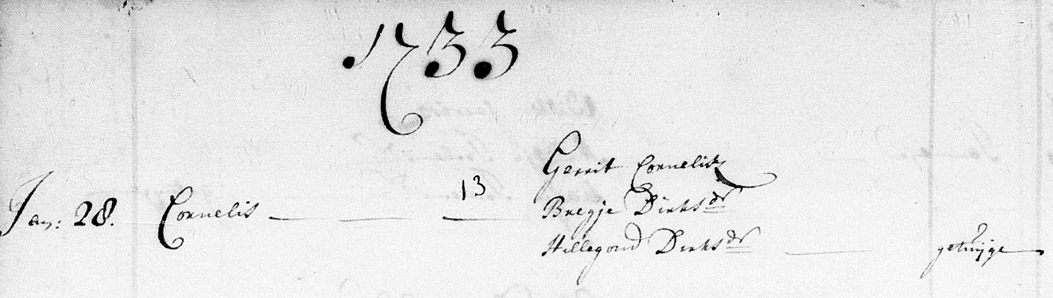 1733
Gerrit Cornelisz
Jan: 28. Cornelis 13 Bregje Dirksdr
Hillegond Dirksdr getuijge